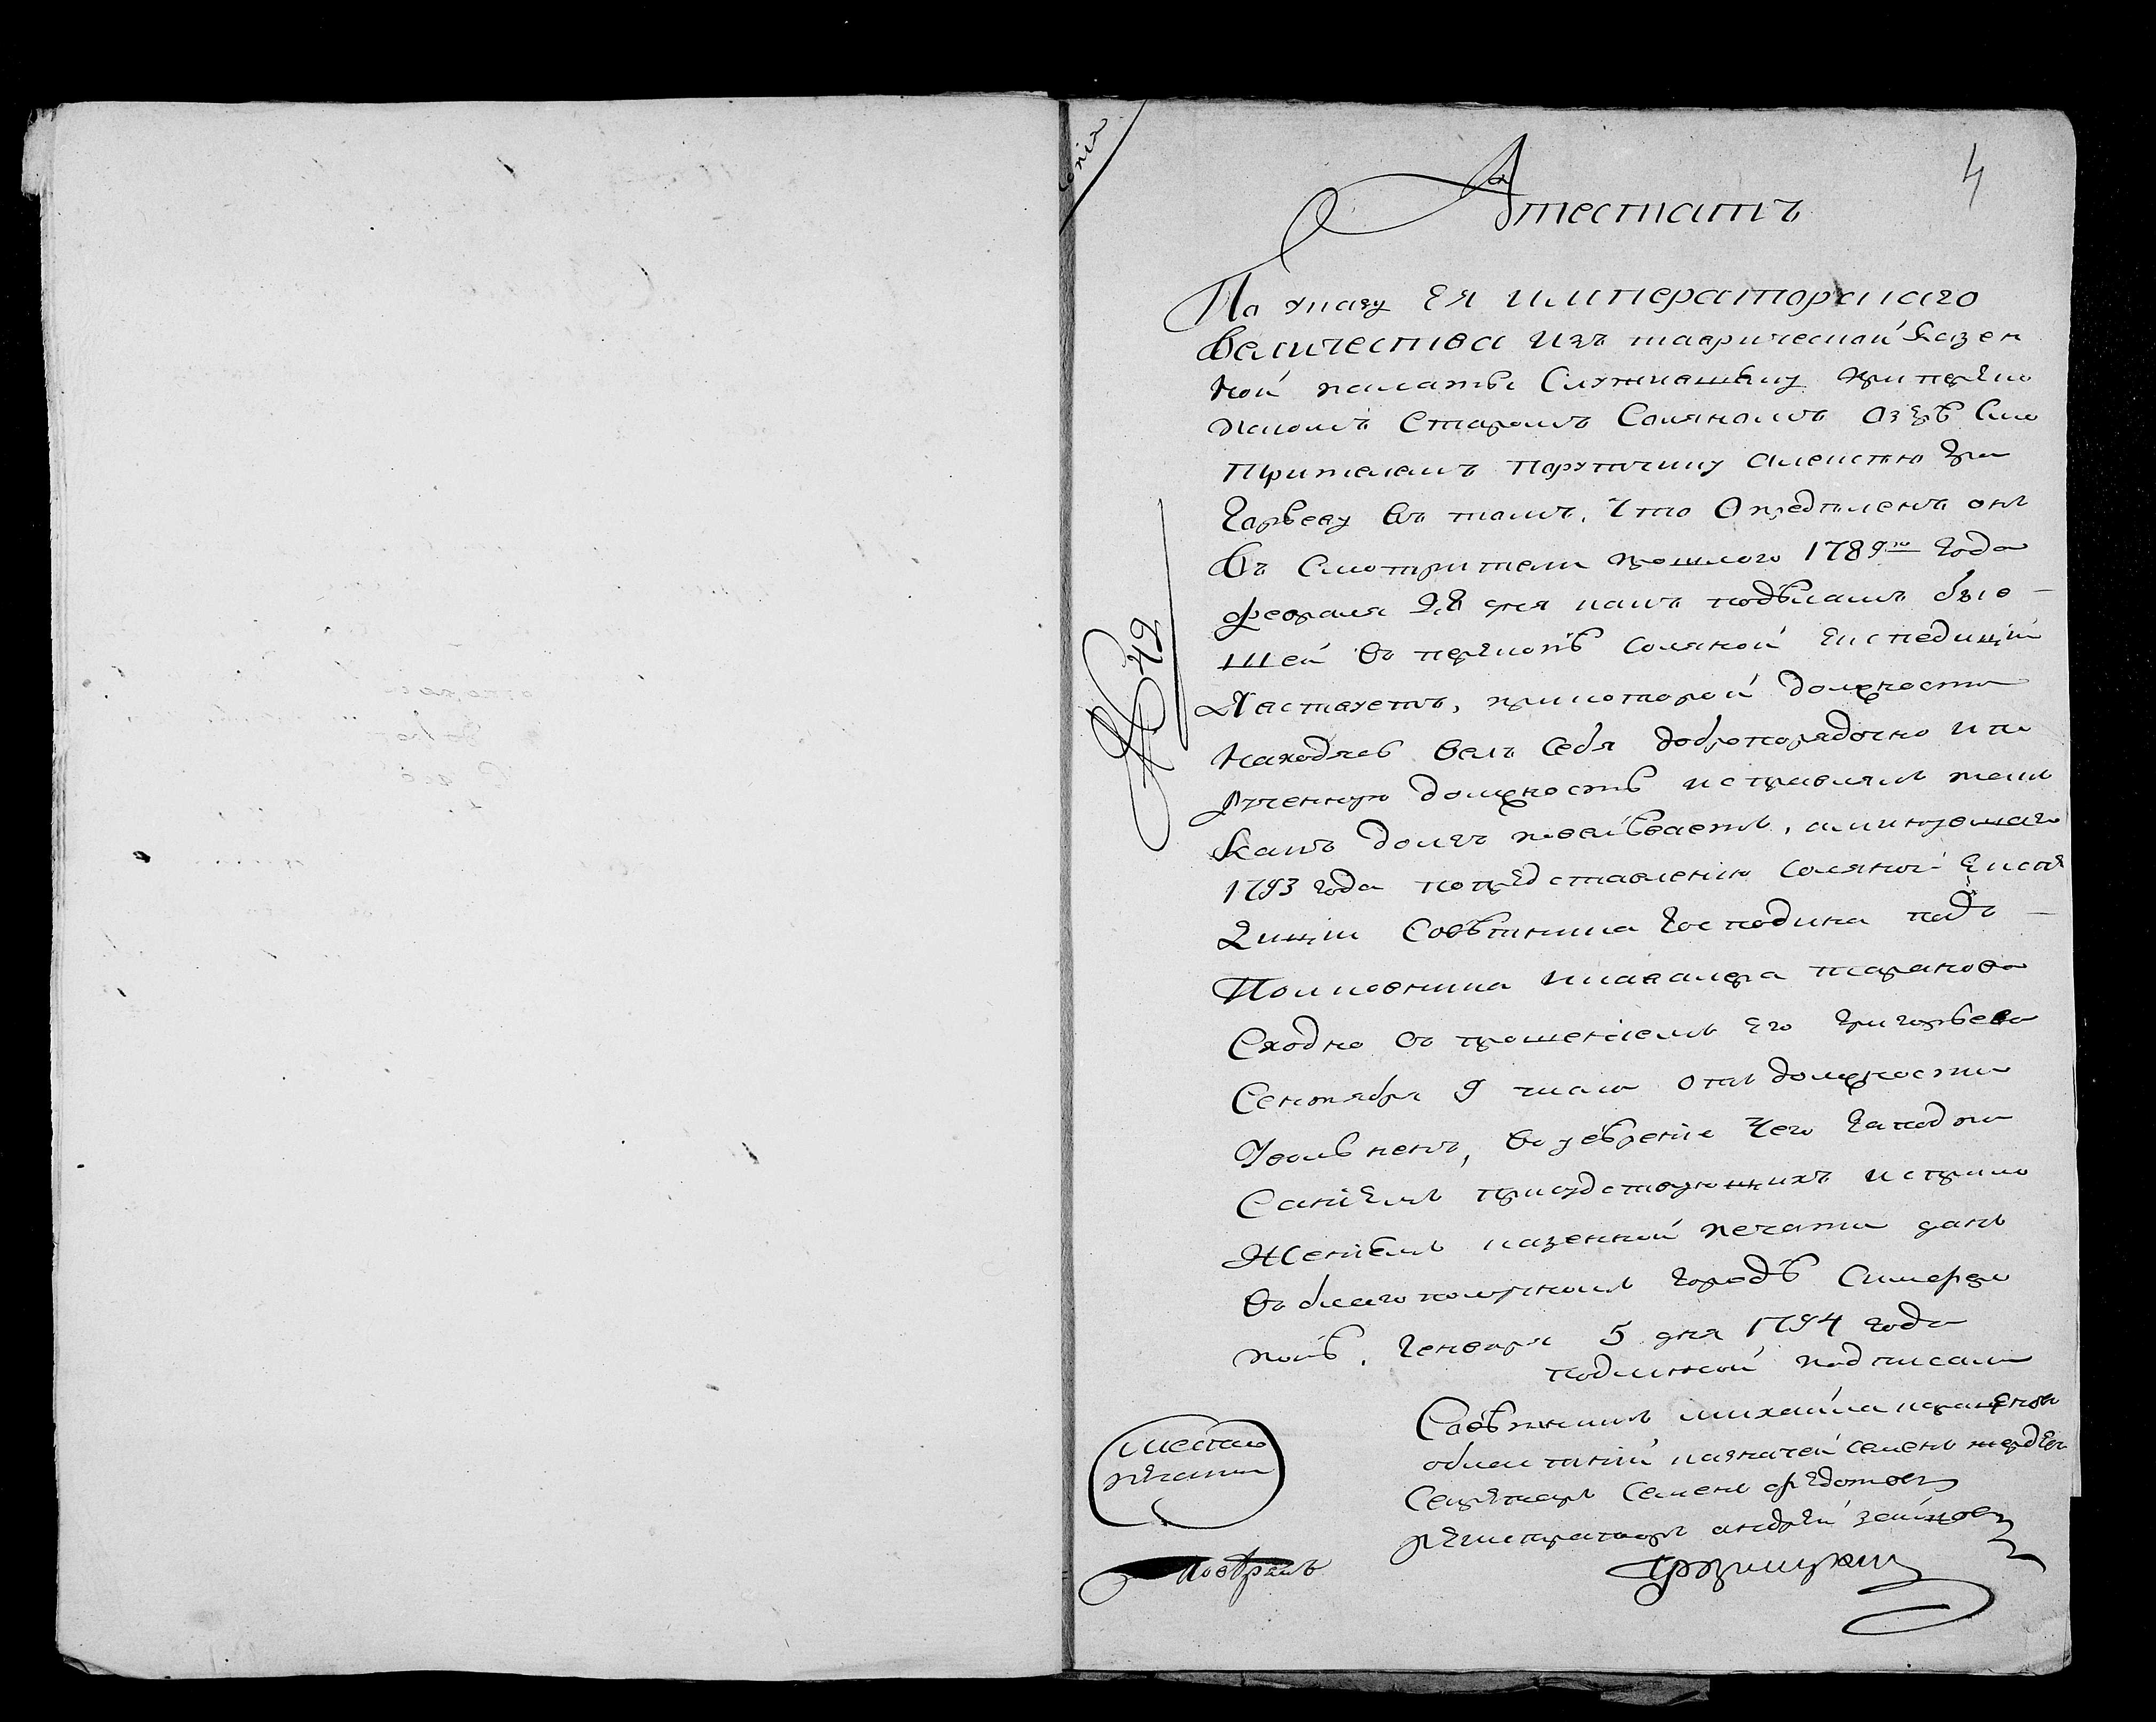 опiя
4
Атестатъ
По указу Ея императорскаго
величества изъ таврической казен
ной палаты Служившему при переко
пскомъ Старомъ Соляномъ Озерѣ Смо
трителемъ порутчику алексѣю Гри
горьеву въ томъ, что Определенъ онъ
въ Смотрители прошлого 1789го года
февраля 28 дня какъ подѣламъ быв-
шей въ перекопѣ соляной Експедицiи
Явствуетъ, при которой должности
находясь велъ Себя добропорядочно и по
рученную должность исправлялъ такъ
какъ долгъ повелѣваетъ, а минувшаго
1793 года по представлению соляной Експе
дицiи Совѣтника Господина подъ-
Полковника и кавалера таранова
Сходно съ прошенiемъ Его Григорьева
Сентября 9 числа отъ должности
Уволенъ, во увѣренiе чего за подпи
Санiемъ присудствующихъ и с прило
женiемъ казенной печати данъ
въ благополучномъ городѣ Симферо
полѣ. Генваря 5 дня 1794 года
подлинной подписали
Совѣтникъ михайла
областной казначей семенъ
Секретарь Семенъ федотовъ
регистраторъ андрей
место
печати
№ 42